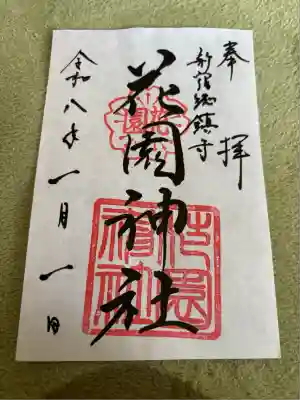 奉拝
新宿総鎮守
花園神社
令和八年一月一日
花園
花園神社